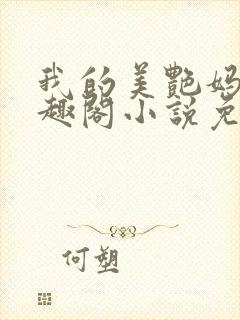 我的美艷妈
趣閣小説免
何塑